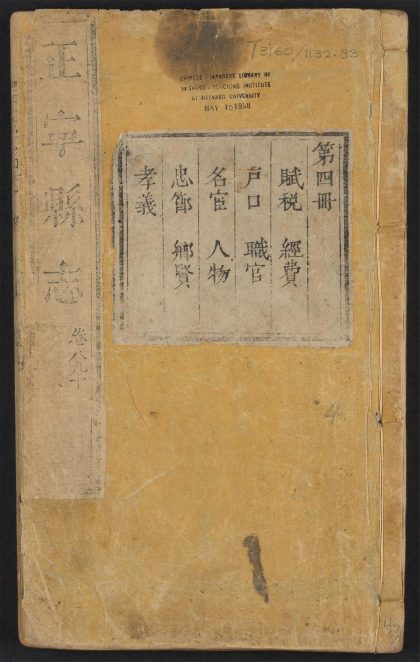 T3160/1132.83
CHINESE-JAPANESE LIBRARY OF
HARVARD-YENCHING INSTITUTE
AT HARVARD UNIVERSITY
MAY 1 1958
第四冊
賦税 經費
戸口 職官
名宦 人物
忠節 鄉賢
孝義
正寧縣志
卷八九十
4